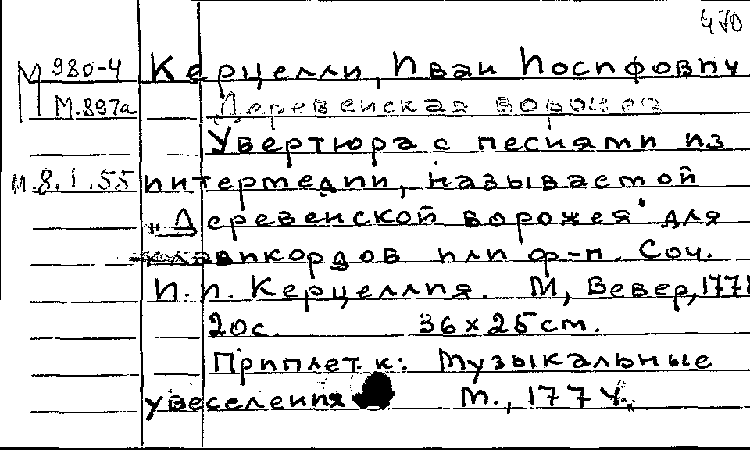 470
М 980-4 Керцелли, Иван Иосифович
М.897а Деревенская ворожея
Увертюра с песнями из
М.8.I.55 интермедии, называемой
„Деревенской ворожея" для
клавикордов или ф-п. Соч.
И.И. Керцеллия. М, Вевер, 1778
20с. 36 x 25 cm.
Приплет. к: Музыкальные
увеселения М., 1774.